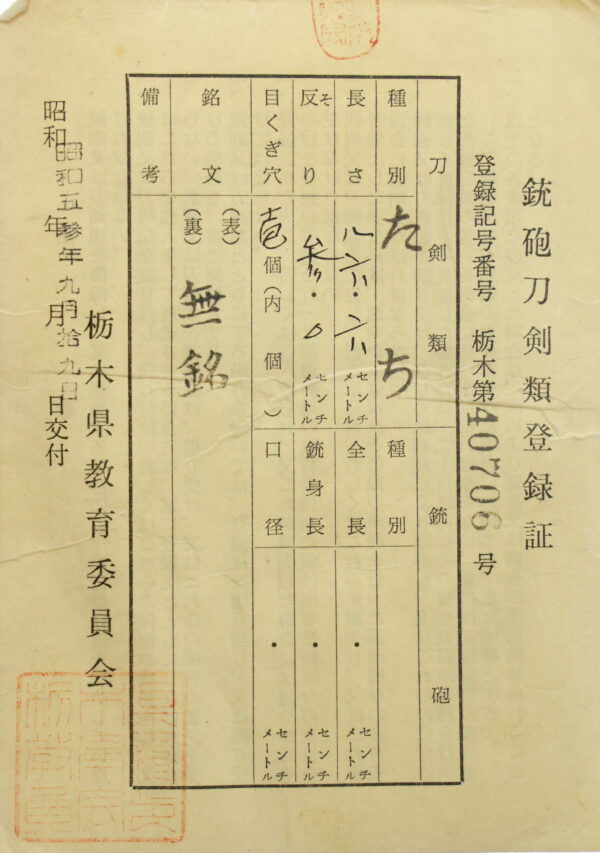 銃砲刀剣類登録証
登録記号番号 栃木第40706号
刀剣類 銃砲
種別 たち 種別
長さ 八六・六 センチメートル 全長 ・ センチメートル
反り そ 参・0 センチメートル 銃身長 ・ センチメートル
目くぎ穴 壱個(内 個) 口径 ・ センチメートル
銘文 (表) (裏) 無銘
備考
栃木県教育委員会
昭和 年 月 日交付
昭和五参年九月拾九日